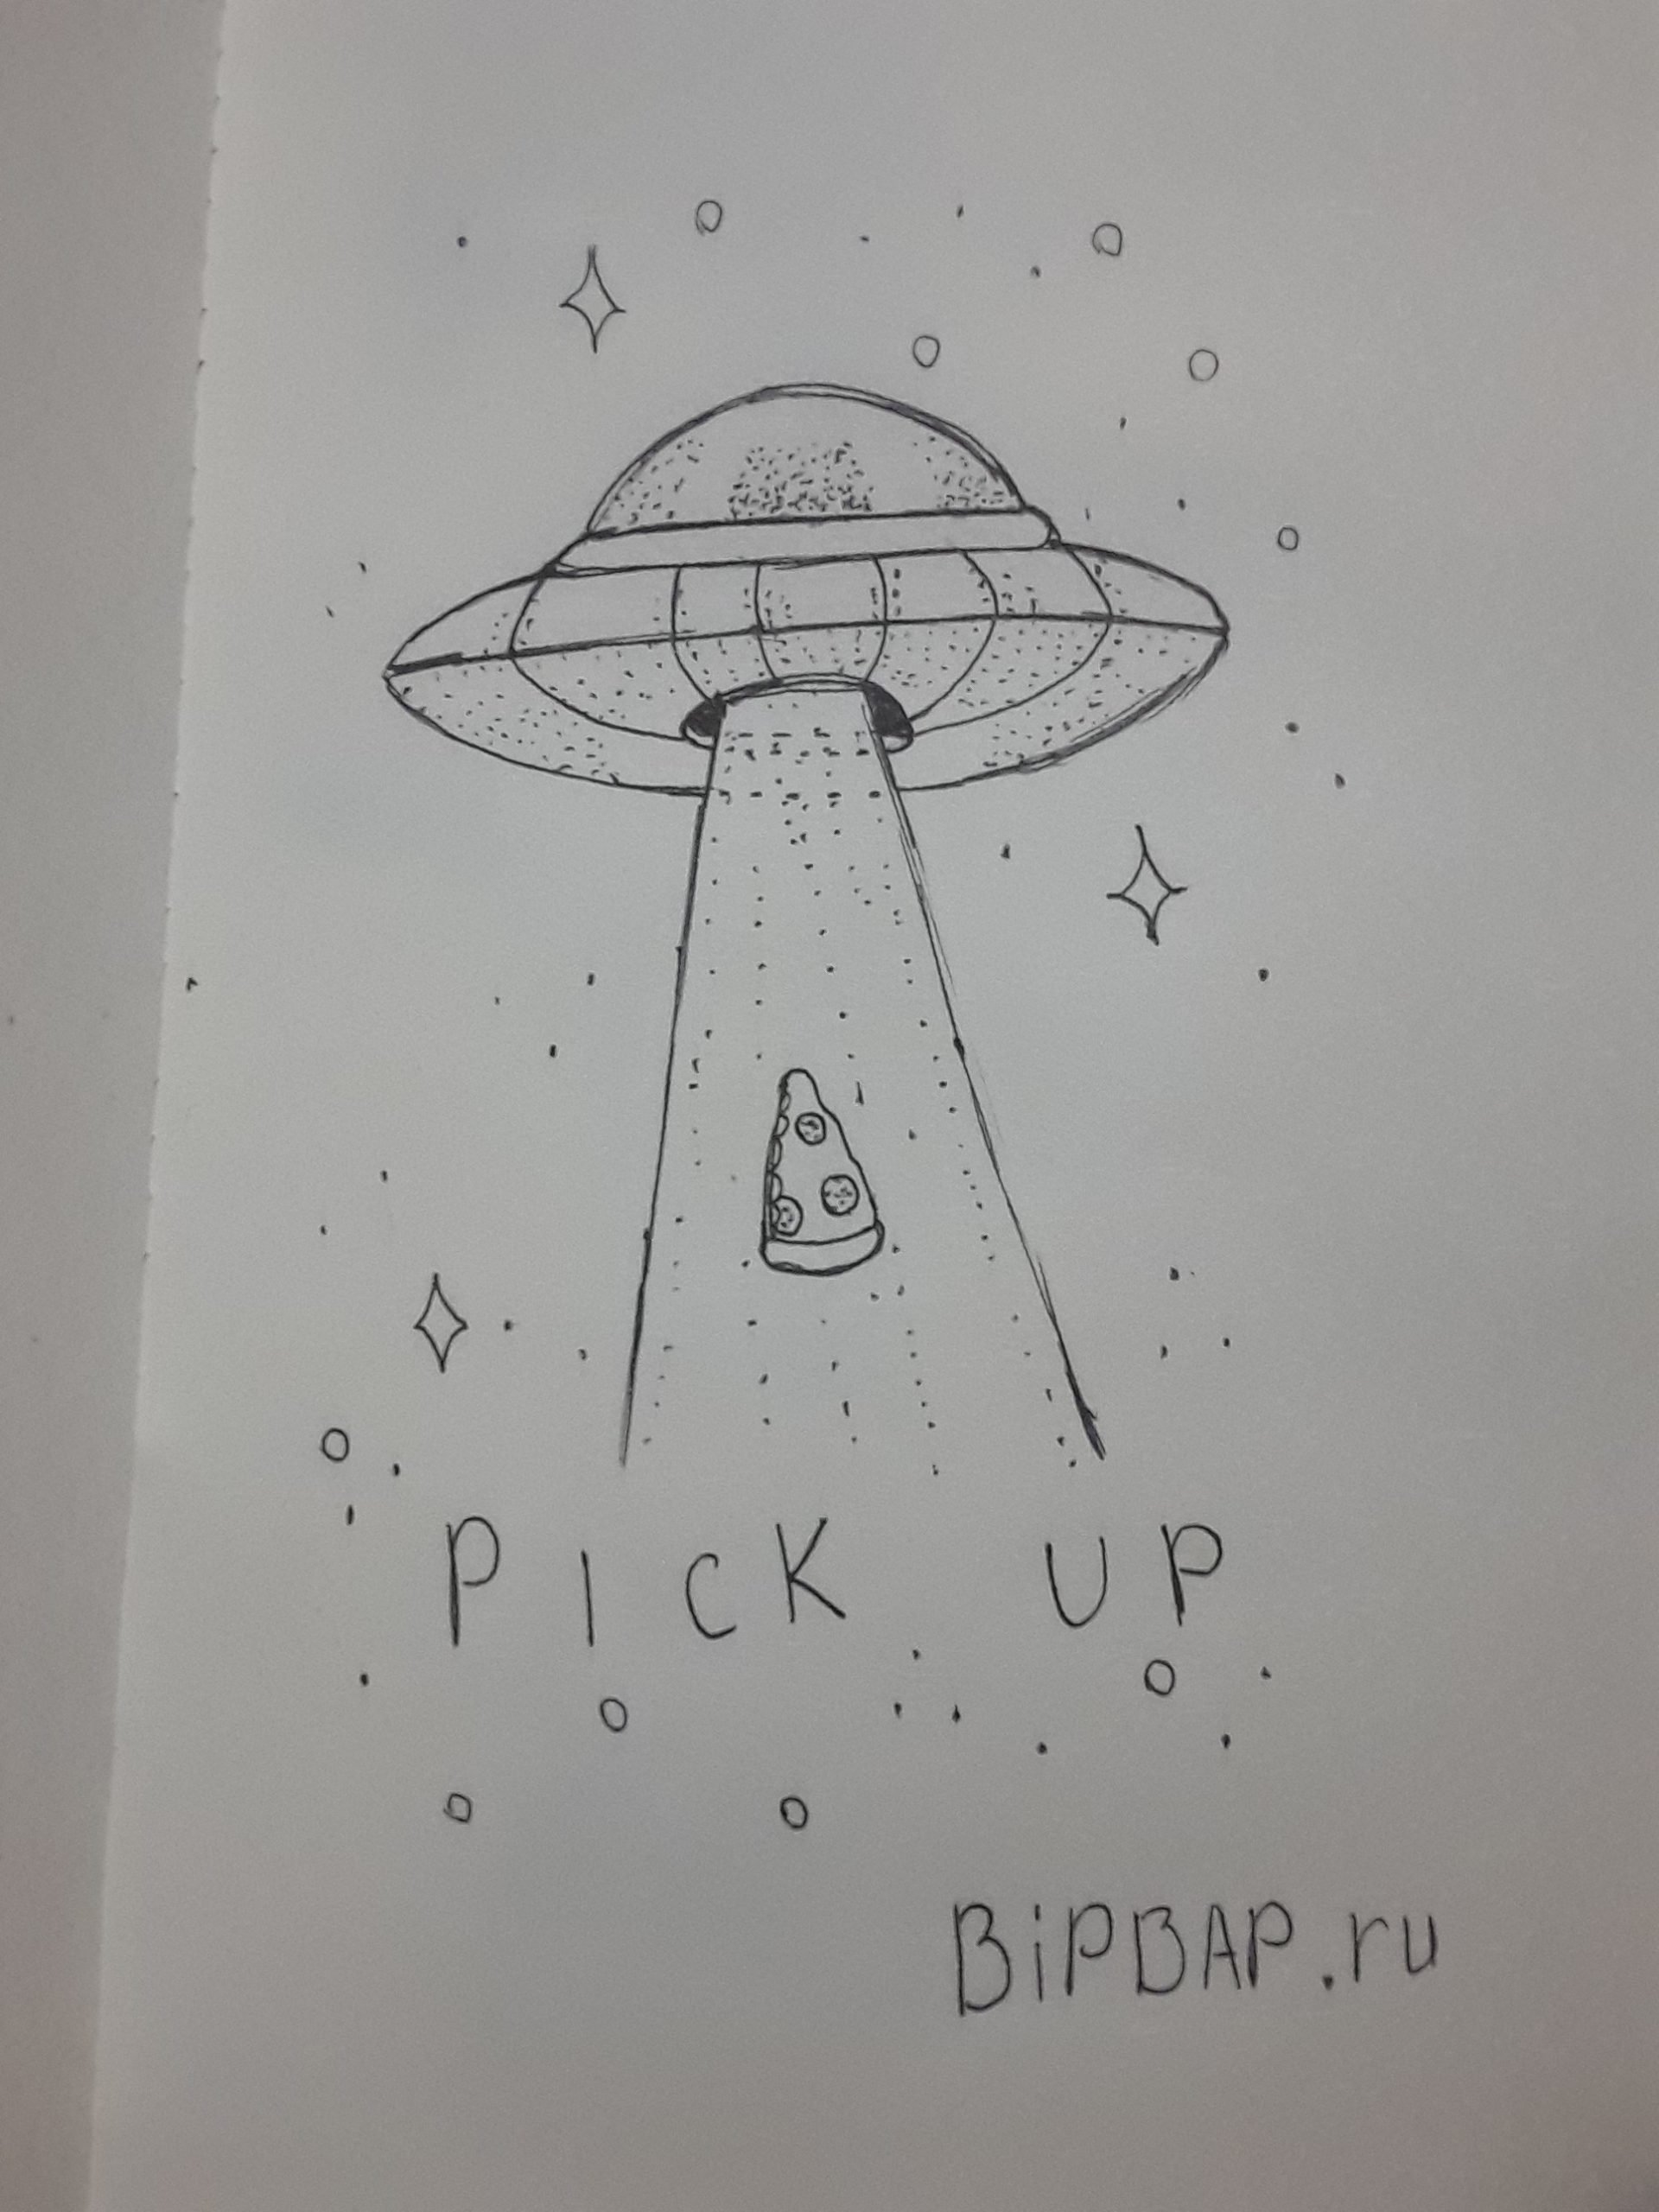 PIcK UP
BiPBAP.ru